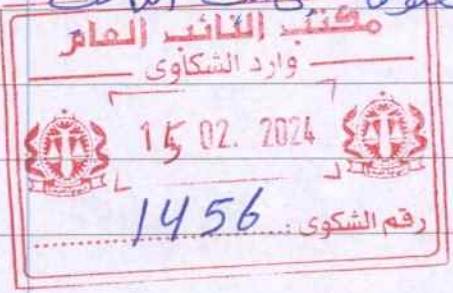 مكتب النائب العام
وارد الشكاوى
15 02. 2024
رقم الشكوى: 1456